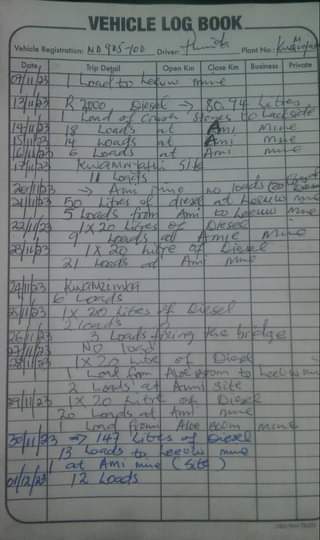 VEHICLE LOG BOOK
Vehicle Registration: ND 985-700 Driver: Plant No:
Date Trip Detail Open Km Close Km Business Private
09/11/23 1 Load to Leeuw mine
13/11/23 R2000 Diesel → 80.74 Litres
1 Load of Crush Stones to
14/11/23 18 Loads at Ami mine
15/11/23 14 Loads at Ami mine
16/11/23 6 Loads at Ami mine
17/11/23 Site
11 Loads
20/11/23 → Ami mine no loads
21/11/23 50 Litres of diesel at Leeuw mine
5 Loads from Ami to Leeuw mine
22/11/23 1X20 Litres of Diesel
9 Loads at Amie mine
23/11/23 1X20 litre of Diesel
21 Loads at Ami mine
24/11/23
6 Loads
25/11/23 1X20 litres of Diesel
2 loads
26/11/23 3 Loads fixing the bridge
27/11/23 No load
28/11/23 1X20 Litre of Diesel
1 Load from Aloe to Leeuw mine
2 Loads at Ami site
29/11/23 1X20 Litre of Diesel
20 Loads at Ami mine
Load from Aloe mine
30/11/23 → 147 Litres of Diesel
13 Loads to Leeuw mine
1 at Ami mine (site)
01/12/23 12 Loads